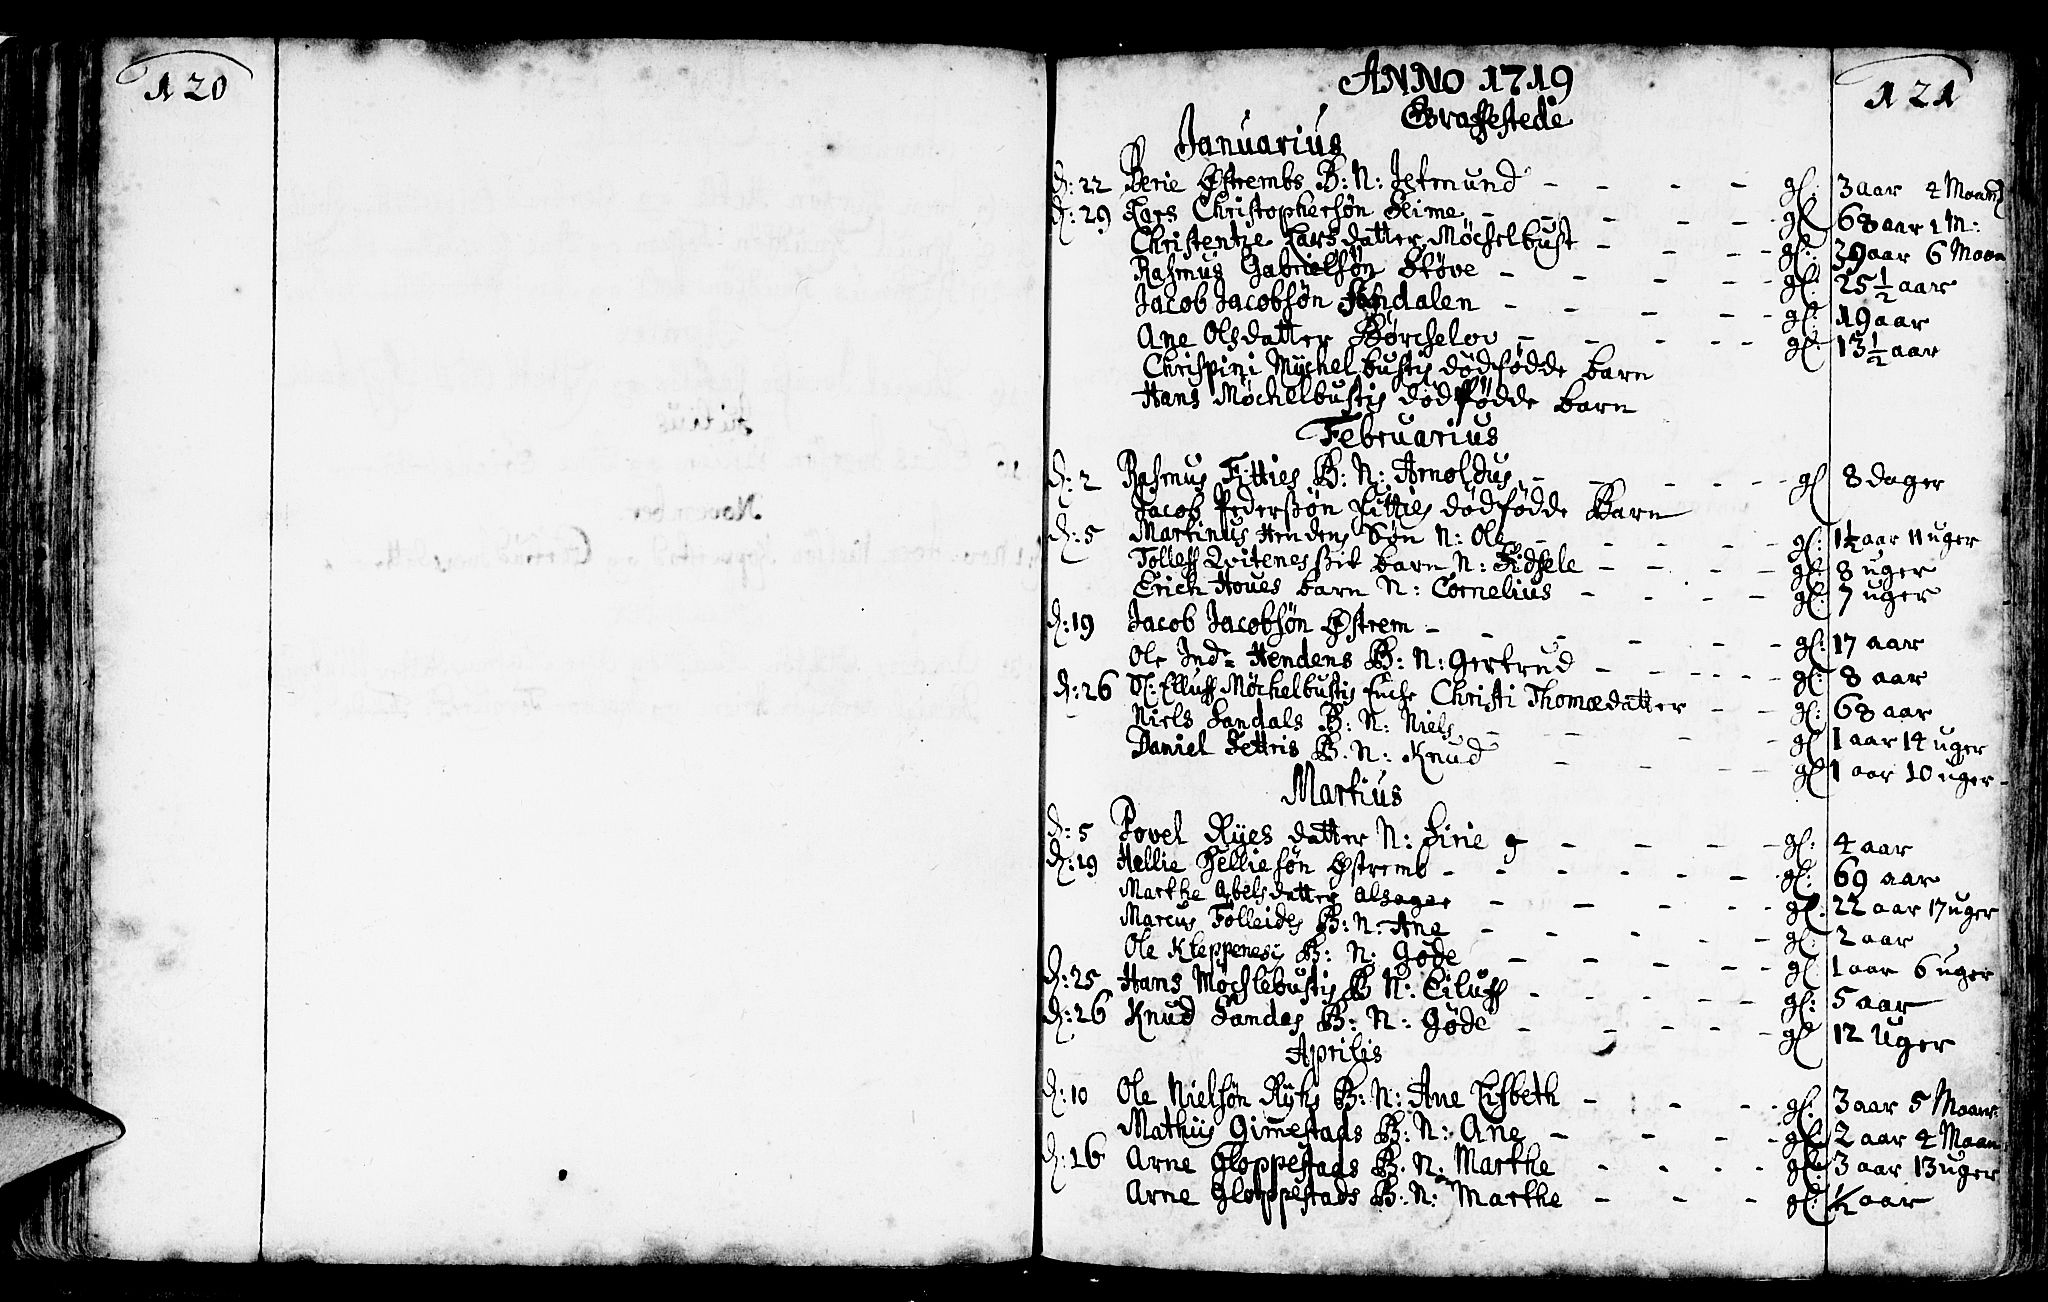 120
ANNO 1719
121
Begraffestede
Januarius
d: 22 Berie Østrembs B: N: Jetmund - - - - gl: 3 aar 4 Maan
d: 29 Lars Christophersøn Sime - - - - gl 68 aar 1 M:
Christentze Larsdatter Møchelbust - - - gl: 39 aar 6 Maan
Rasmus Gabrielsøn Støve - - - - gl: 25 1/2 aar
Jacob Jacobsøn Sandalen - - - - gl: 19 aar
Ane Olsdatter Børchelov - - - - gl: 13 1/2 aar
Chrispini Mychelbustis dødfødde barn
Hans Møchelbustis dødfødde barn
Februarius
d: 2 Rasmus Fitties B: N: Arnoldus - - - - gl 8 dager
Jacob Pederssøn Fitties dødfødde Barn
d: 5 Martinus Hendens Søn N: Ole - - - - gl: 1 1/2 aar 11 uger
Tolleff Qvitenes barn N: Sidsele - - - - gl: 8 uger
Erich Houes barn N: Cornelius - - - - gl: 7 uger
d: 19 Jacob Jacobsøn Østrem - - - - gl: 17 aar
Ole Ind- Hendens B: N: Gertrud - - - - gl: 8 aar
d: 26 Sl: Elluff Møchelbustis Enche Christi Thomædatter - - gl: 68 aar
Niels Sandals B: N: Niels - - - - gl 1 aar 14 uger
Daniel Fettris B: N: Knud - - - gl 1 aar 10 uger
Martius
d: 5 Povel Ryes datter N: Sirie - - - - gl: 4 aar
d: 19 Hellie Helliesøn Østremb - - - - gl: 69 aar
Marthe Abelsdatter Alsager - - - - gl: 22 aar 17 uger
Marcus Folleides B: N: Ane - - - - gl: 2 aar
Ole Kleppenes B: N: Gøde - - - - gl 1 aar 6 uger
d: 25 Hans Møchlebustis B N: Eiluff - - - - gl: 5 aar
d: 26 Knud Sandes B: N: Gøde - - - - gl 12 Uger
Aprilis
d: 10 Ole Nielsøn Ryhs B: N: Ane Lisbeth - - - gl: 3 aar 5 Maan
Mathiis Gimestads B: N: Ane - - - - gl: 2 aar 4 Maan
d: 16 Arne Gloppestads B: N: Marthe - - - - gl: 3 aar 13 uger
Arne Gloppestads B: N: Marthe - - - gl: 1/2 aar